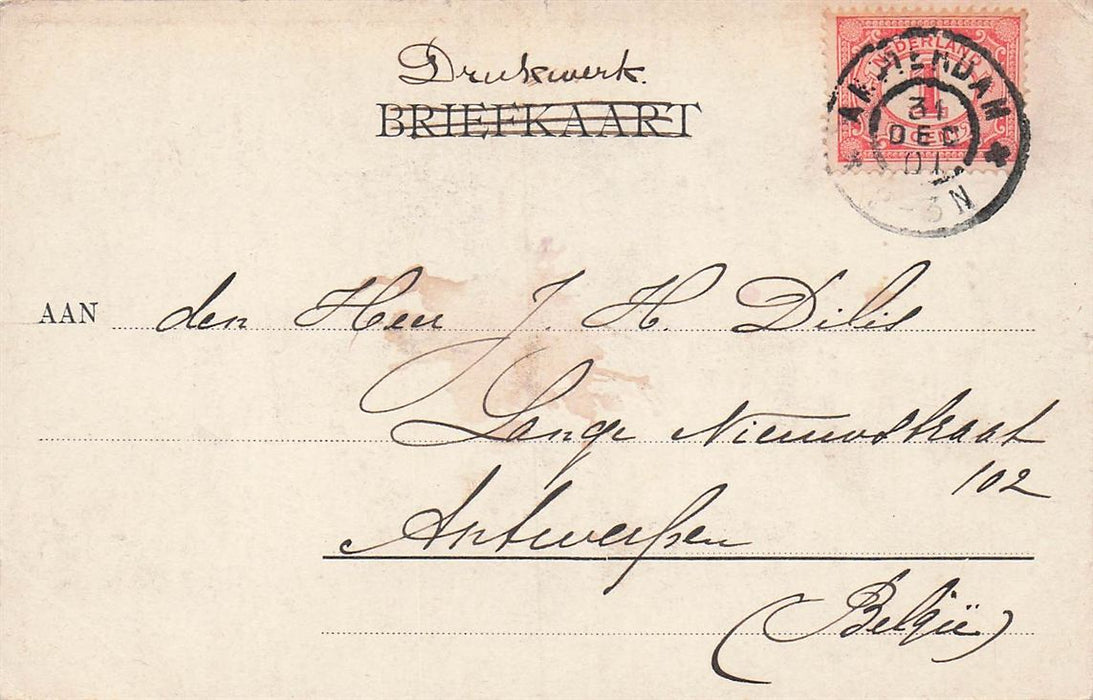 Drukwerk.
BRIEFKAART
NEDERLAND
1
AMSTERDAM
31
DEC
01
-3N
AAN den Heer J. H. Dilis
Lange Nieuwstraat
102
Antwerpen
(België)